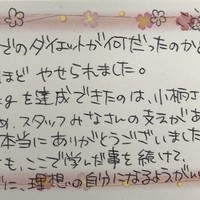 でのダイエットが何だったのかと
ほど やせられました。
gを達成できたのは、小柄さ
め、スタッフみなさんの支えがあ
本当にありがとうございました
も、ここで学んだ事を続けて、
に、理想の自分になるようがん